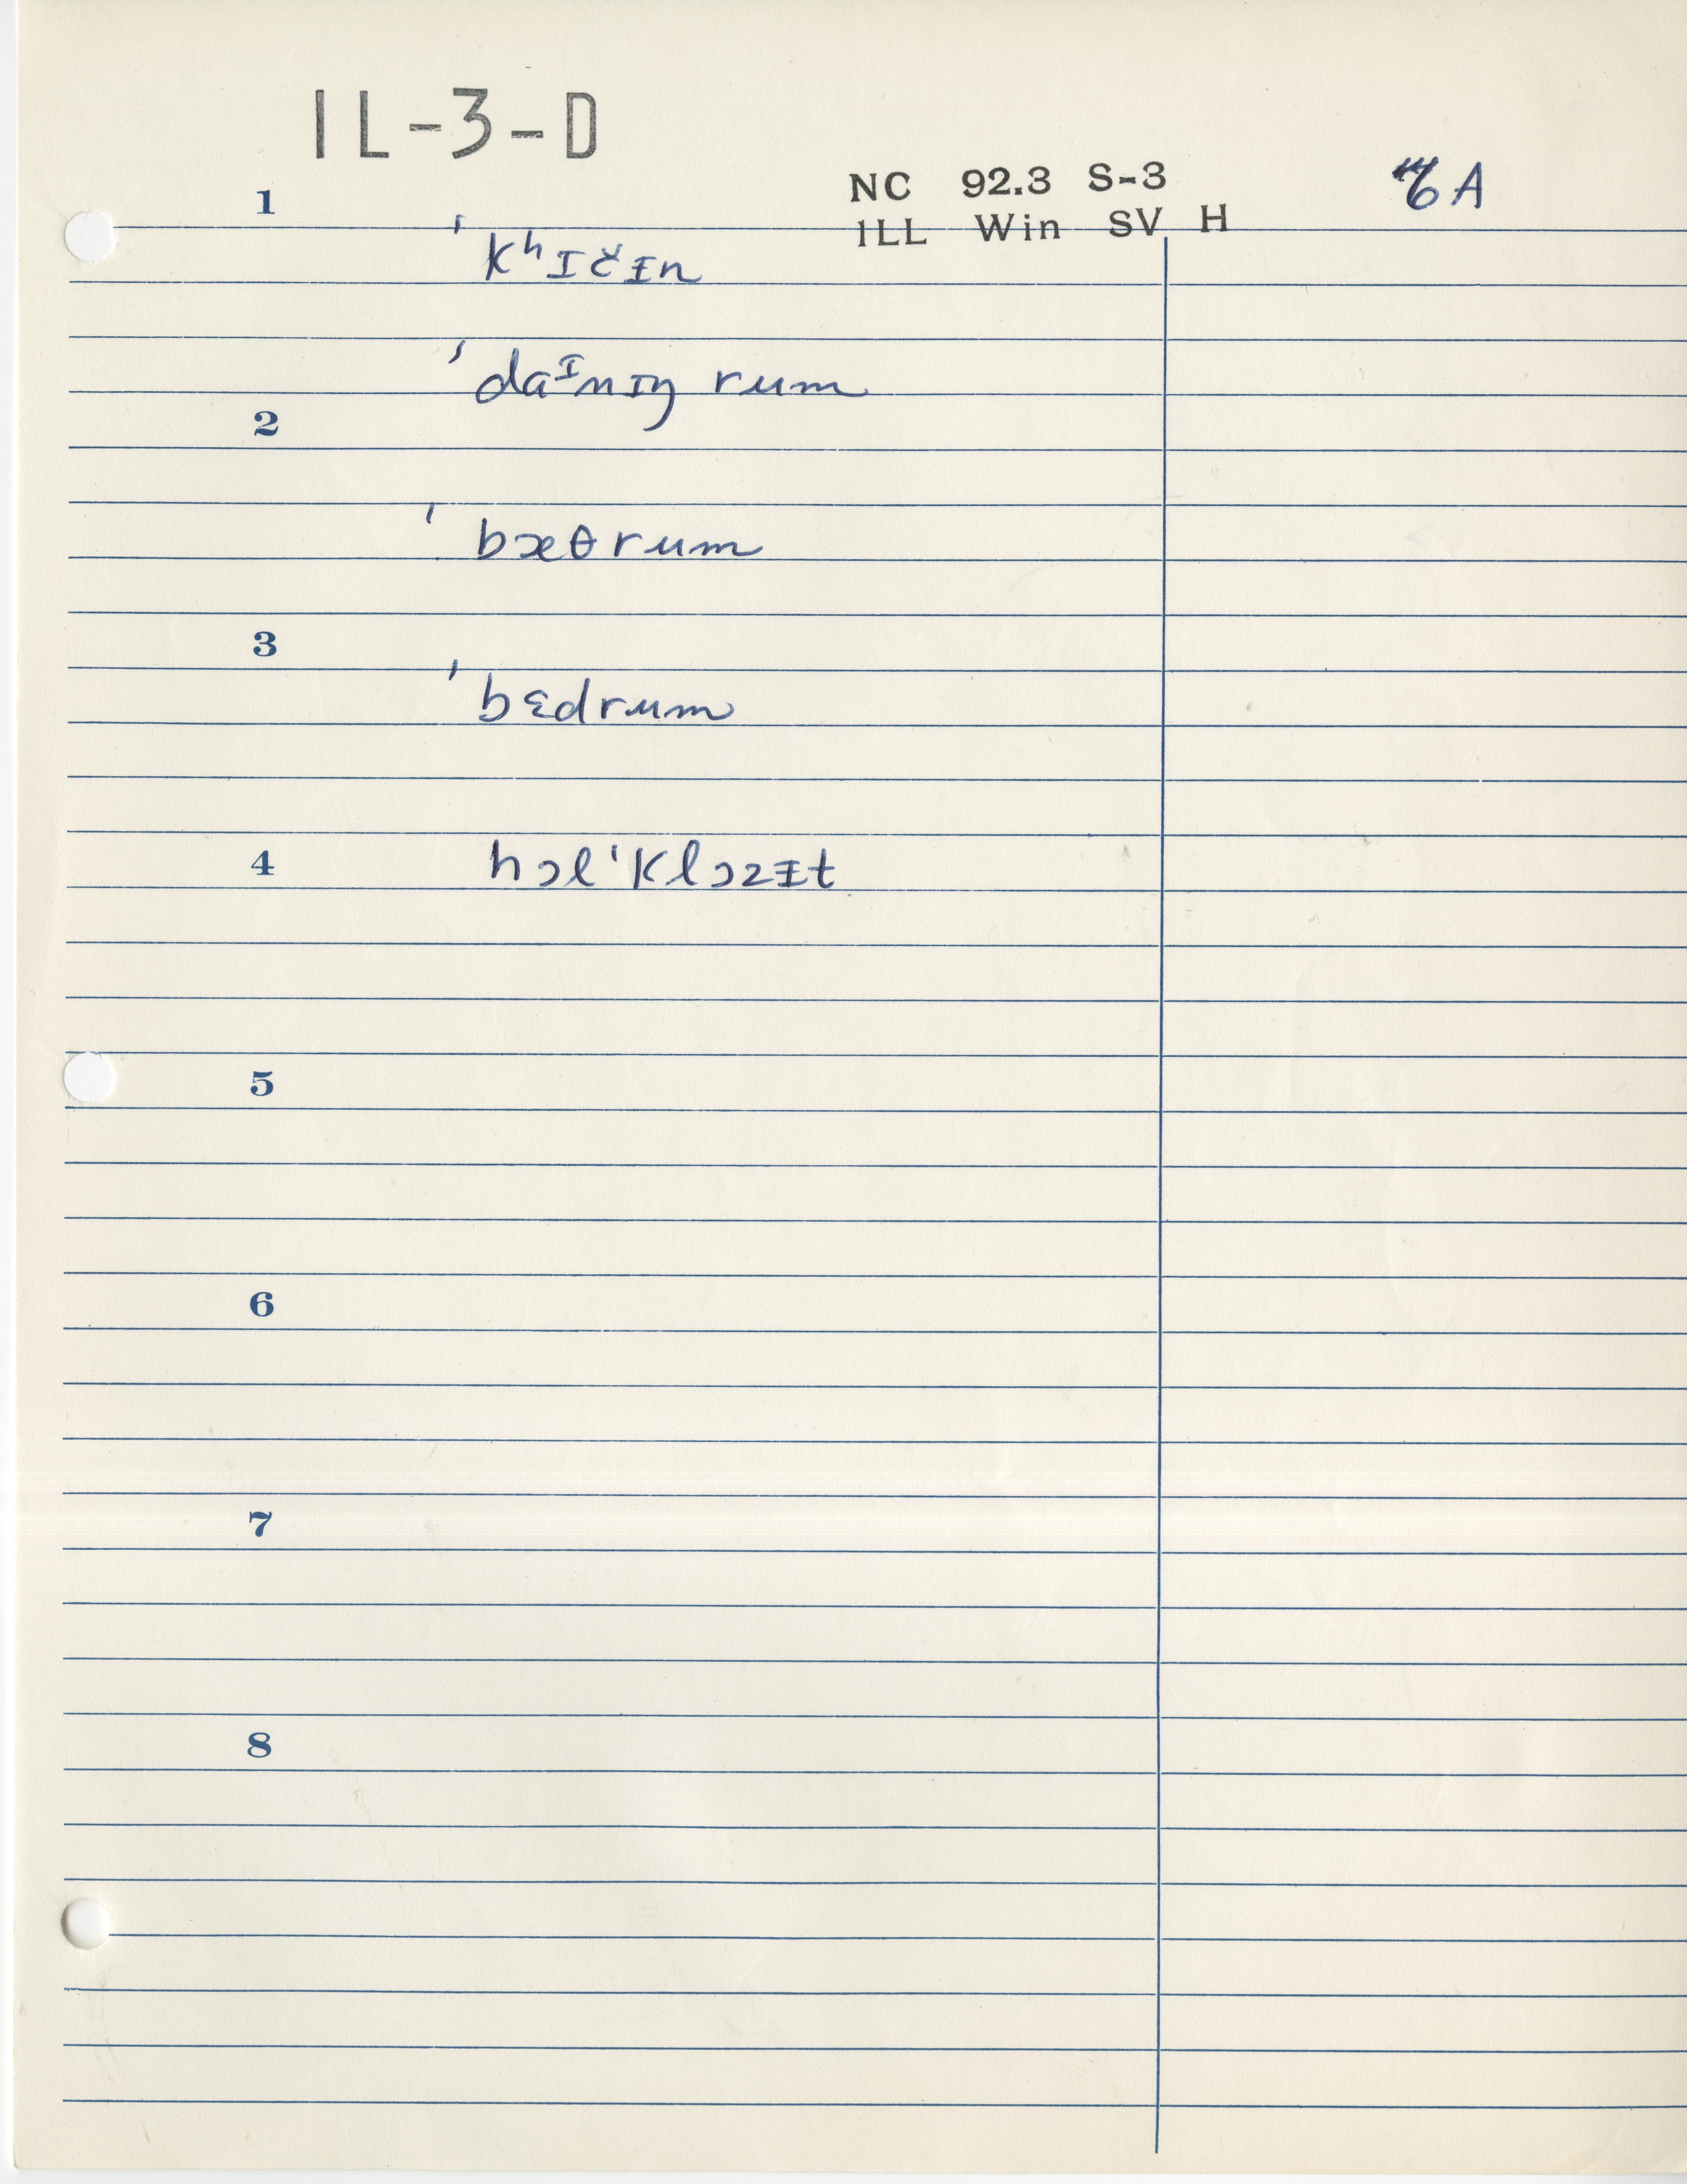 IL-3-D
NC 92.3 S-3
ILL Win SV H
A
1
ˈkʰɪčɪ̵n
ˈdaᶦnɪŋ rum
2
ˈbæθrum
3
ˈbɛdrum
4
hɔlˈklɔzɪ̵t
5
6
7
8